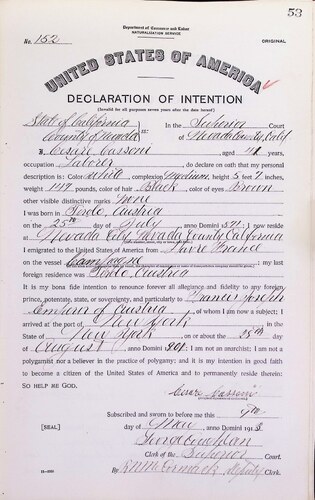 53
Department of Commerce and Labor
NATURALIZATION SERVICE
No. 152
ORIGINAL
UNITED STATES OF AMERICA
DECLARATION OF INTENTION
(Invalid for all purposes seven years after the date hereof)
State of California
County of Nevada ss:
In the Superior Court
of Nevada County, Calif
I, Cesare Cassoni, aged 41 years,
occupation Laborer, do declare on oath that my personal
description is: Color white, complexion Medium, height 5 feet 7 inches,
weight 149 pounds, color of hair Black, color of eyes Brown
other visible distinctive marks None
I was born in Austria
on the 25th day of July, anno Domini 1871; I now reside
at Nevada City, Nevada County, California
I emigrated to the United States of America from Havre France
on the vessel; my last
foreign residence was Austria
It is my bona fide intention to renounce forever all allegiance and fidelity to any foreign
prince, potentate, state, or sovereignty, and particularly to Francis Joseph
Emperor of Austria, of whom I am now a subject; I
arrived at the port of New York, in the
State of New York on or about the 25th day
of August, anno Domini 1901; I am not an anarchist; I am not a
polygamist nor a believer in the practice of polygamy; and it is my intention in good faith
to become a citizen of the United States of America and to permanently reside therein:
SO HELP ME GOD.
Cesare Cassoni
Subscribed and sworn to before me this
[SEAL] day of May, anno Domini 1913
Clerk of the Superior Court.
By R N McCormack, deputy Clerk.